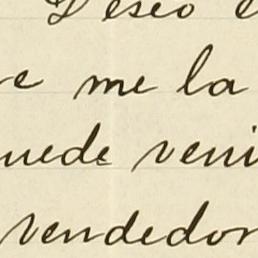 Deseo
me la
puede veni
vendedor